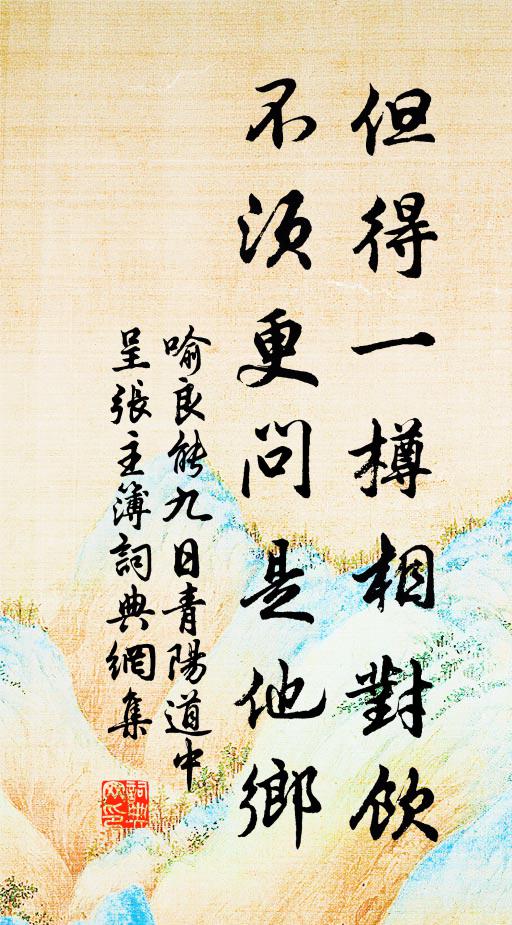 但得一樽相對飲
不須更問是他鄉
喻良能九日青陽道中
呈張主簿詞典網集
詞典
網印